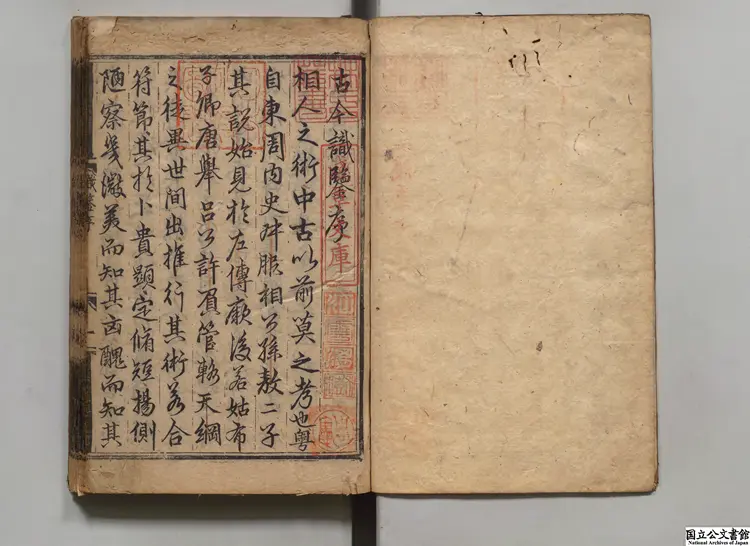 古今識鑒序
相人之術中古以前莫之考也粤
自東周內史叔服相公孫敖二子
其說始見於左傳厥後若姑布
子卿唐舉呂公許負管輅天綱
之徒異世間出推行其術若合
符節其於卜貴顯定脩短揚側
陋察幾微美而知其凶醜而知其
國立公文書館
National Archives of Japan